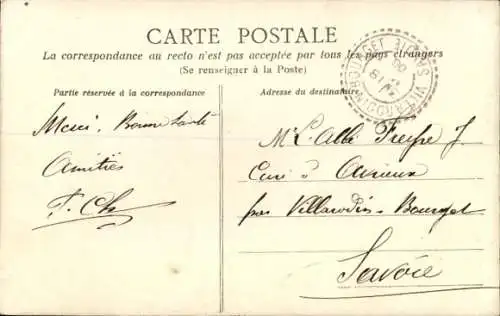 CARTE POSTALE
La correspondance au recto n'est pas acceptée par tous les pays étrangers
(Se renseigner à la Poste)
Partie réservée à la correspondance
Adresse du destinataire
Merci. Bonne Santé
Amitiés
F. Ch
Mr L. Abbé Freyre J.
Curé à Avrieux
par Villarodin-Bourget
Savoie
VILLARODIN-BOURGET
SAVOIE